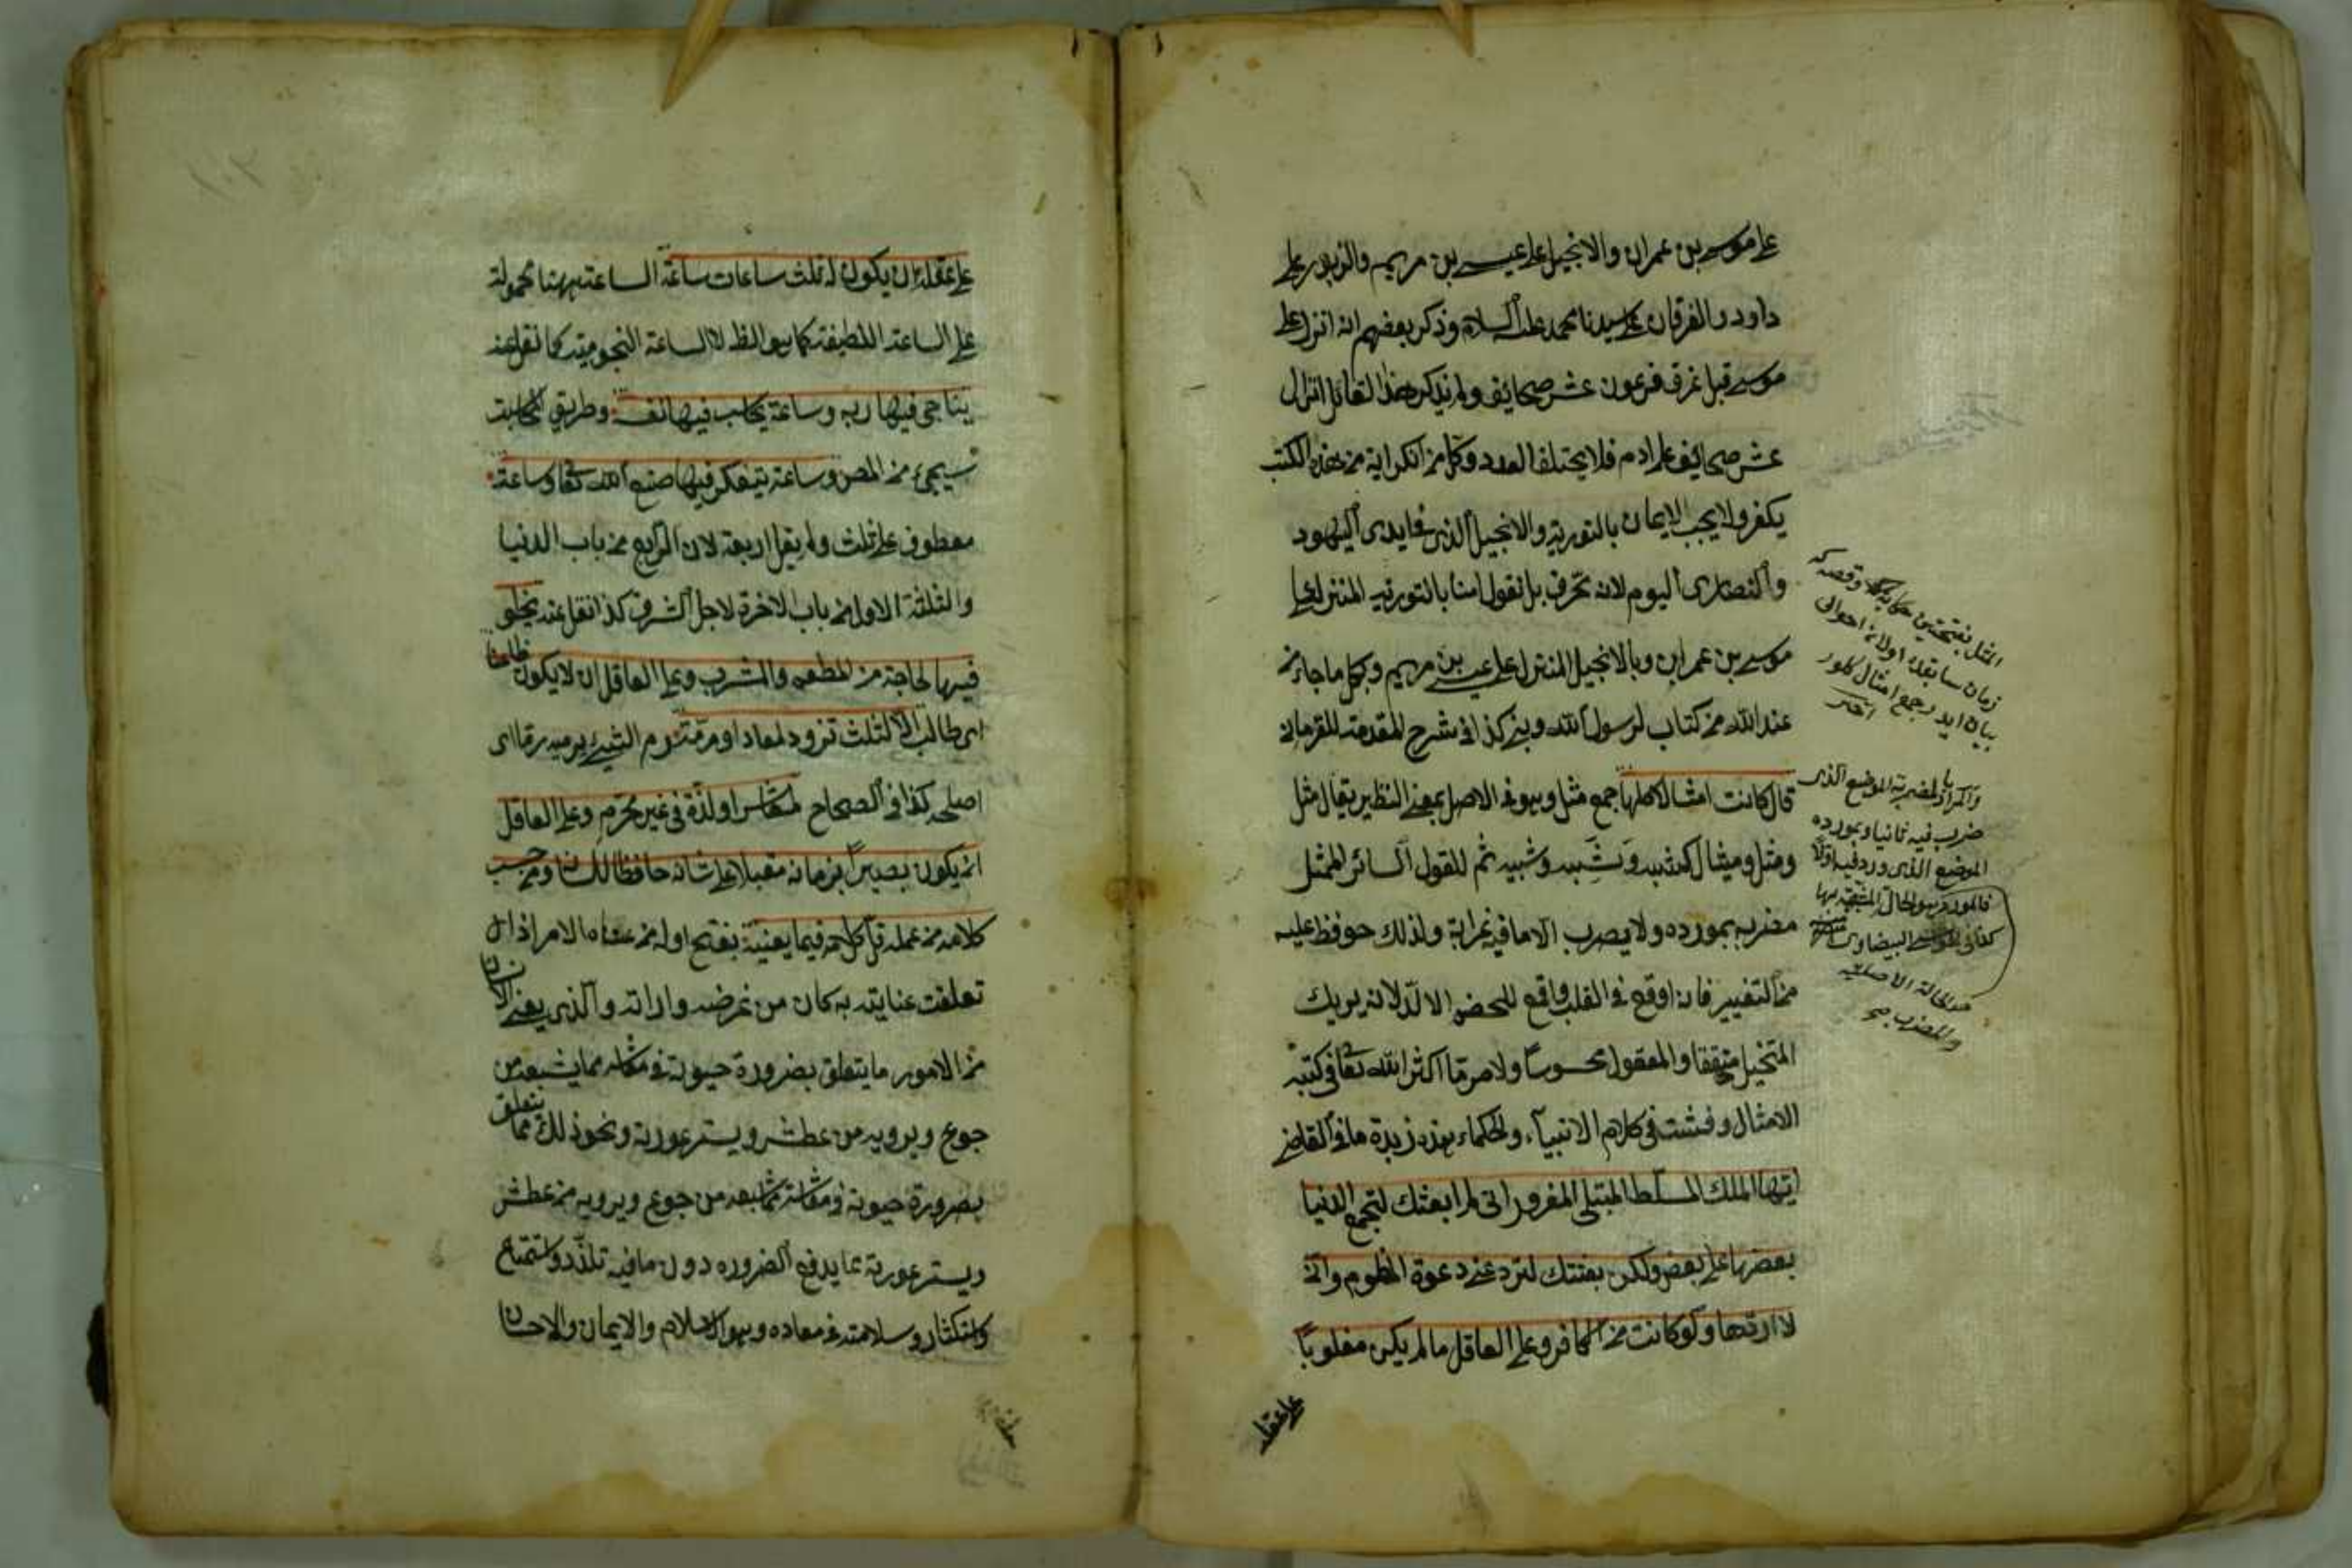 على موسى بن عمران والانجيل على عيسى بن مريم والزبور على
داود والفرقان على سيدنا محمد عليه السلام وذكر بعضهم انه انزل على
موسى قبل غرق فرعون عشر صحائف ولم يذكر هذا القائل انزال
عشر صحائف على ادم فلا يختلف العدد وكل من انكر اية من هذه الكتب
يكفر ولا يجب الايمان بالتورية والانجيل الذى فى ايدى اليهود
والنصارى اليوم لانه محرف بل نقول امنا بالتورية المنزل على
موسى بن عمران وبالانجيل المنزل على عيسى بن مريم وبكل ما جاء من
عند الله من كتاب لرسول الله ونبى كذا فى شرح المقدمة للقرمانى
قال كانت امثالا كلها جمع مثل وهو فى الاصل بمعنى النظير يقال مثل
ومثل ومثيل كشبه وشبه وشبيه ثم للقول السائر الممثل
مضربه بمورده ولا يضرب الا ما فيه غرابة ولذلك حوفظ عليه
من التغيير فانه اوقع فى القلب واقمع للخصم الالد لانه يريك
المتخيل متحققا والمعقول محسوسا ولامر ما اكثر الله تعا فى كتبه
الامثال وفشت فى كلام الانبياء والحكماء هذه زبدة ما فى القاضى
ايها الملك المسلط المبتلى المغرور انى لم ابعثك لتجمع الدنيا
بعضها على بعض ولكن بعثتك لترد عنى دعوة المظلوم وانى
لا اردها ولو كانت من الكافر وعلى العاقل ما لم يكن مغلوبا
على عقله
المثل بفتحتين
زمان سابقده اولان احوالى
بيان ايدر جمع امثال كلور
اخترى
والمراد بالمضربة الموضع الذى
ضرب فيه ثانيا وبمورده
الموضع الذى ورد فيه اولا
فالمورد هو الحال المشبهة بها
البيضاوى
الحالة الاصلية
والمضرب
على عقله ان يكون له ثلث ساعات ساعة الساعة ههنا محمولة
على الساعة اللطيفة كما هو الظ لا الساعة النجومية كما نقل عنه
يناجى فيها ربه وساعة يحاسب فيها نفسه وطريق المحاسبة
سيجئ من المص وساعة يتفكر فيها صنع الله تعا وساعة
معطوف على ثلث ولم يقل اربعة لان الرابع من باب الدنيا
والثلثة الاول من باب الاخرة لاجل الشرف كذا نقل عنه يخلو
فيها لحاجة من المطعم والمشرب وعلى العاقل ان لا يكون ظاعنا
اى طالبا الا لثلث تزود لمعاد او مرمة رم الشيئ يرمه رما اى
اصلحه كذا فى الصحاح لمعاش او لذة فى غير محرم وعلى العاقل
ان يكون بصيرا بزمانه مقبلا على شانه حافظا للسانه ومن حسب
كلامه من عمله قل كلامه فيما يعنيه بفتح اوله من عناه الامر اذا
تعلقت عنايته به كان من غرضه وارادته والذى يعنى الانسان
من الامور ما يتعلق بضرورة حيوته فى معاشه مما يشبعه من
جوع ويرويه من عطش ويستر عورته ونحو ذلك مما يتعلق
بضرورة حيوته فى معاشه مما يشبعه من جوع ويرويه من عطش
ويستر عورته مما يدفع الضرورة دون ما فيه تلذذ واستمتاع
واستكثار وسلامته فى معاده وهو الاسلام والايمان والاحسان